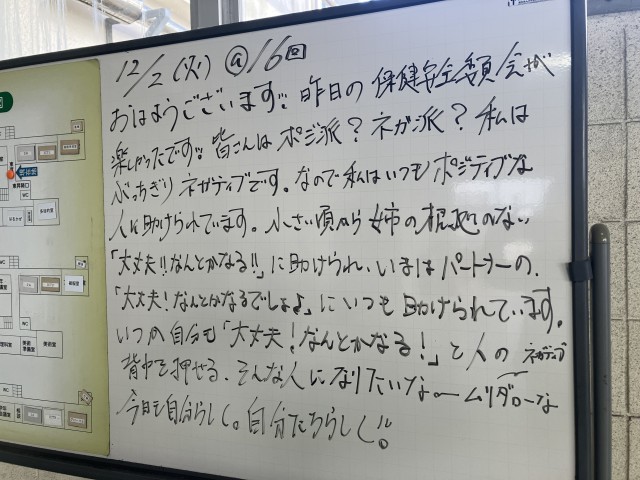 12/2(火) @16回
おはようございます!! 昨日の保健安全委員会が
楽しかったです!! 皆さんは ポジ派？ネガ派？私は
ぶっちぎり ネガティブです。なので私はいつも ポジティブな
人に助けられています。小さい頃から 姉の根拠のない
「大丈夫!!なんとかなる!!」に助けられ、いまは パートナーの、
「大丈夫！なんとかなるでしょよ」にいつも助けられています。
いつか自分も「大丈夫！なんとかなる！」と人の ネガティブ
背中を押せる、そんな人になりたいなー ムリダローな
今日も自分らしく。自分たちらしく!!。